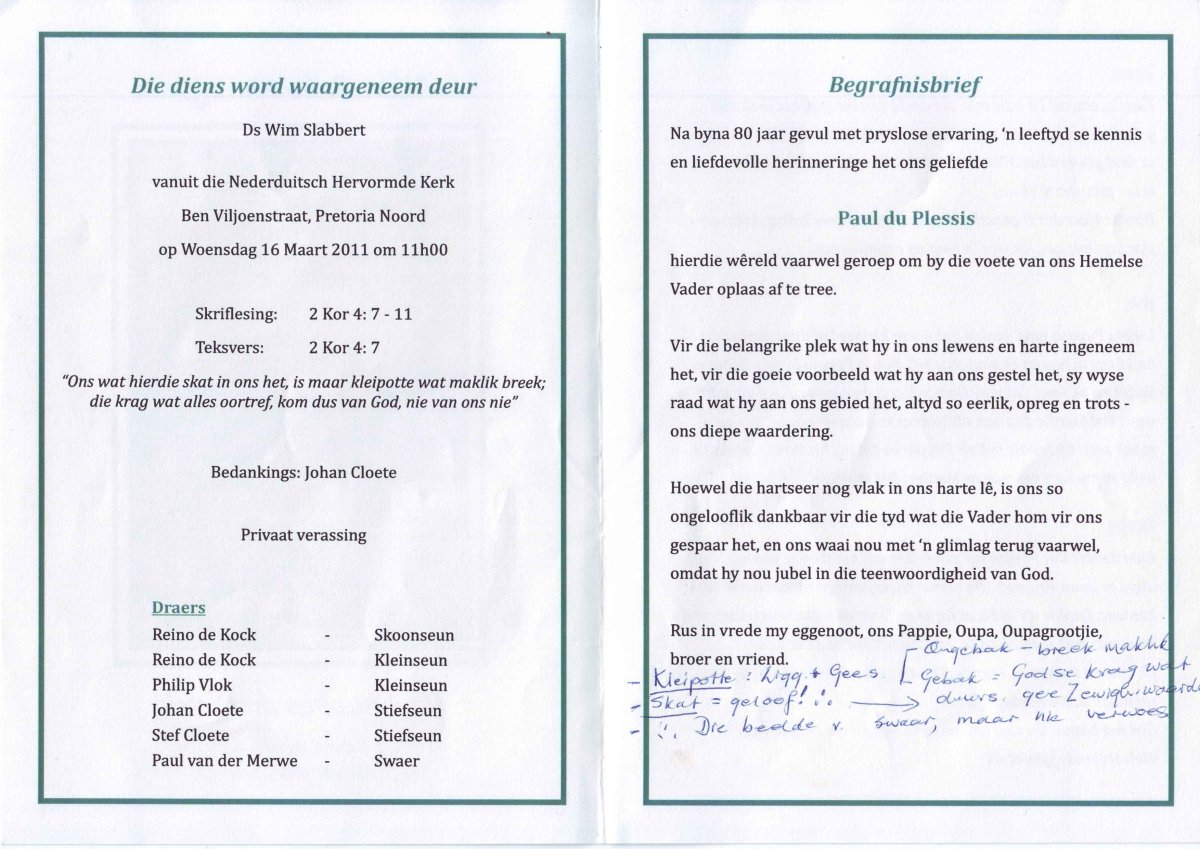 Die diens word waargeneem deur
Ds Wim Slabbert
vanuit die Nederduitsch Hervormde Kerk
Ben Viljoenstraat, Pretoria Noord
op Woensdag 16 Maart 2011 om 11h00
Skriflesing: 2 Kor 4: 7 - 11
Teksvers: 2 Kor 4: 7
“Ons wat hierdie skat in ons het, is maar kleipotte wat maklik breek;
die krag wat alles oortref, kom dus van God, nie van ons nie”
Bedankings: Johan Cloete
Privaat verassing
Draers
Reino de Kock - Skoonseun
Reino de Kock - Kleinseun
Philip Vlok - Kleinseun
Johan Cloete - Stiefseun
Stef Cloete - Stiefseun
Paul van der Merwe - Swaer
Begrafnisbrief
Na byna 80 jaar gevul met pryslose ervaring, ‘n leeftyd se kennis
en liefdevolle herinneringe het ons geliefde
Paul du Plessis
hierdie wêreld vaarwel geroep om by die voete van ons Hemelse
Vader oplaas af te tree.
Vir die belangrike plek wat hy in ons lewens en harte ingeneem
het, vir die goeie voorbeeld wat hy aan ons gestel het, sy wyse
raad wat hy aan ons gebied het, altyd so eerlik, opreg en trots -
ons diepe waardering.
Hoewel die hartseer nog vlak in ons harte lê, is ons so
ongelooflik dankbaar vir die tyd wat die Vader hom vir ons
gespaar het, en ons waai nou met ‘n glimlag terug vaarwel,
omdat hy nou jubel in die teenwoordigheid van God.
Rus in vrede my eggenoot, ons Pappie, Oupa, Oupagrootjie,
broer en vriend.
Ongebak - breek maklik
- Kleipotte : Ligg. + Gees
Gebak = God se krag wat
- Skat = geloof! ∴ →
gee
- ∴ Die beelde v. swaar, maar nie verwoes